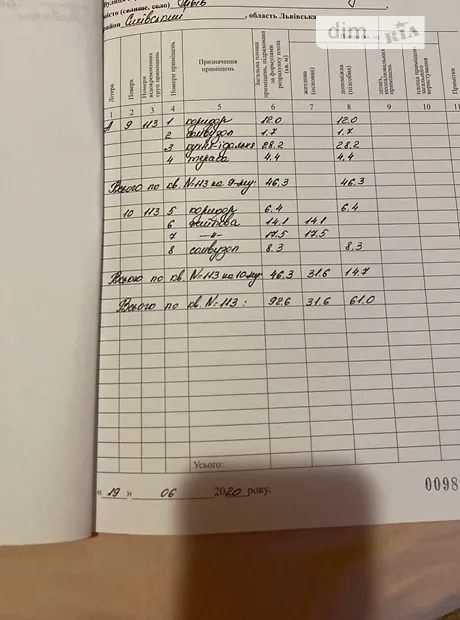 місто (селище, село) Львів
район Сихівський, область Львівська
dim.RIA
Літера
Поверх
Номери відокремлених груп приміщень
Номери приміщень
Призначення приміщень
житлова (основна)
допоміжна (підсобна)
Примітки
1 2 3 4 5 6 7 8 9 10 11
А 9 113 1 коридор 12.0 12.0
2 санвузол 1.7 1.7
3 кухня-їдальня 28.2 28.2
4 тераса 4.4 4.4
Всього по кв. №113 на 9-му: 46.3 46.3
10 113 5 коридор 6.4 6.4
6 житлова 14.1 14.1
7 —"— 17.5 17.5
8 санвузол 8.3 8.3
Всього по кв. №113 на 10му: 46.3 31.6 14.7
Всього по кв. №113: 92.6 31.6 61.0
Усього:
« 19 » 06 2020 року.
0098